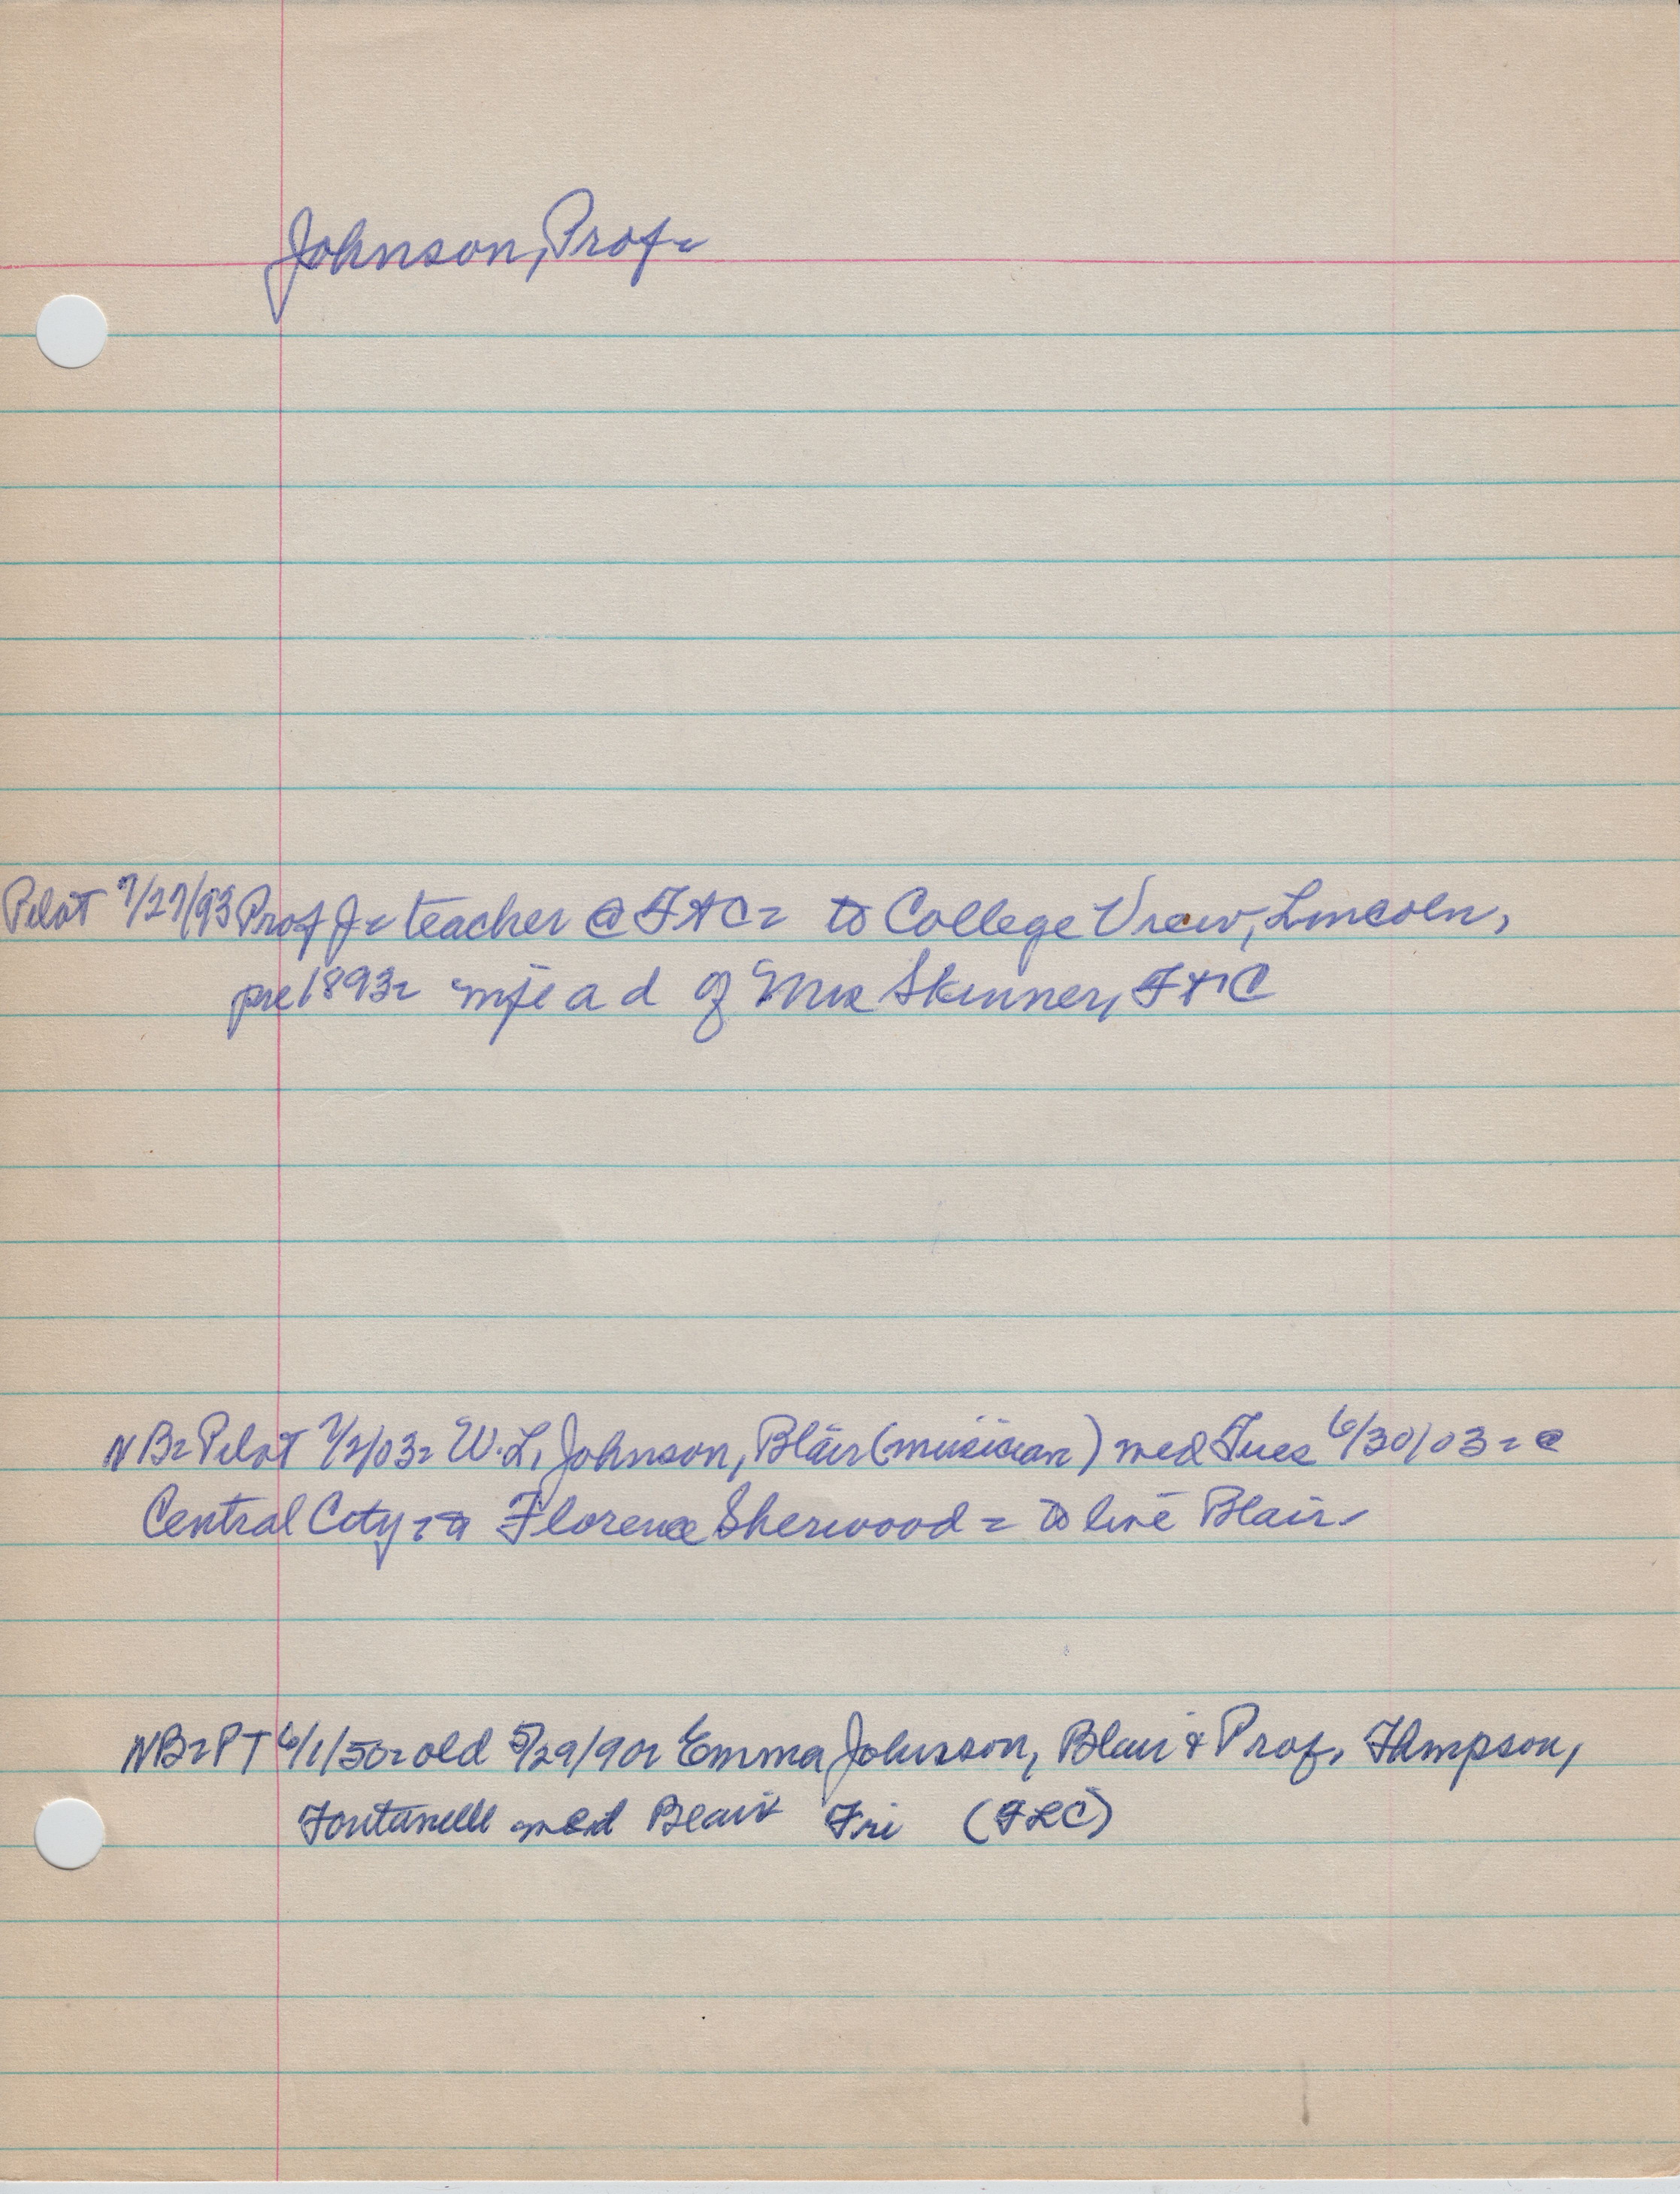 Johnson, Prof-
Pilot 7/27/93 Prof J- teacher @ Ft C- to College View, Lincoln,
pre 1893- wife a d of Mrs Skinner, Ft C
NB- Pilot 7/2/03- W. L. Johnson, Blair (musician) med Tues 6/30/03- @
Central City- to Florence Sherwood - to live Blair-
NB- PT 6/1/50- old 5/29/90- Emma Johnson, Blair & Prof. Thmpson,
Fontanelle med Blair Fri